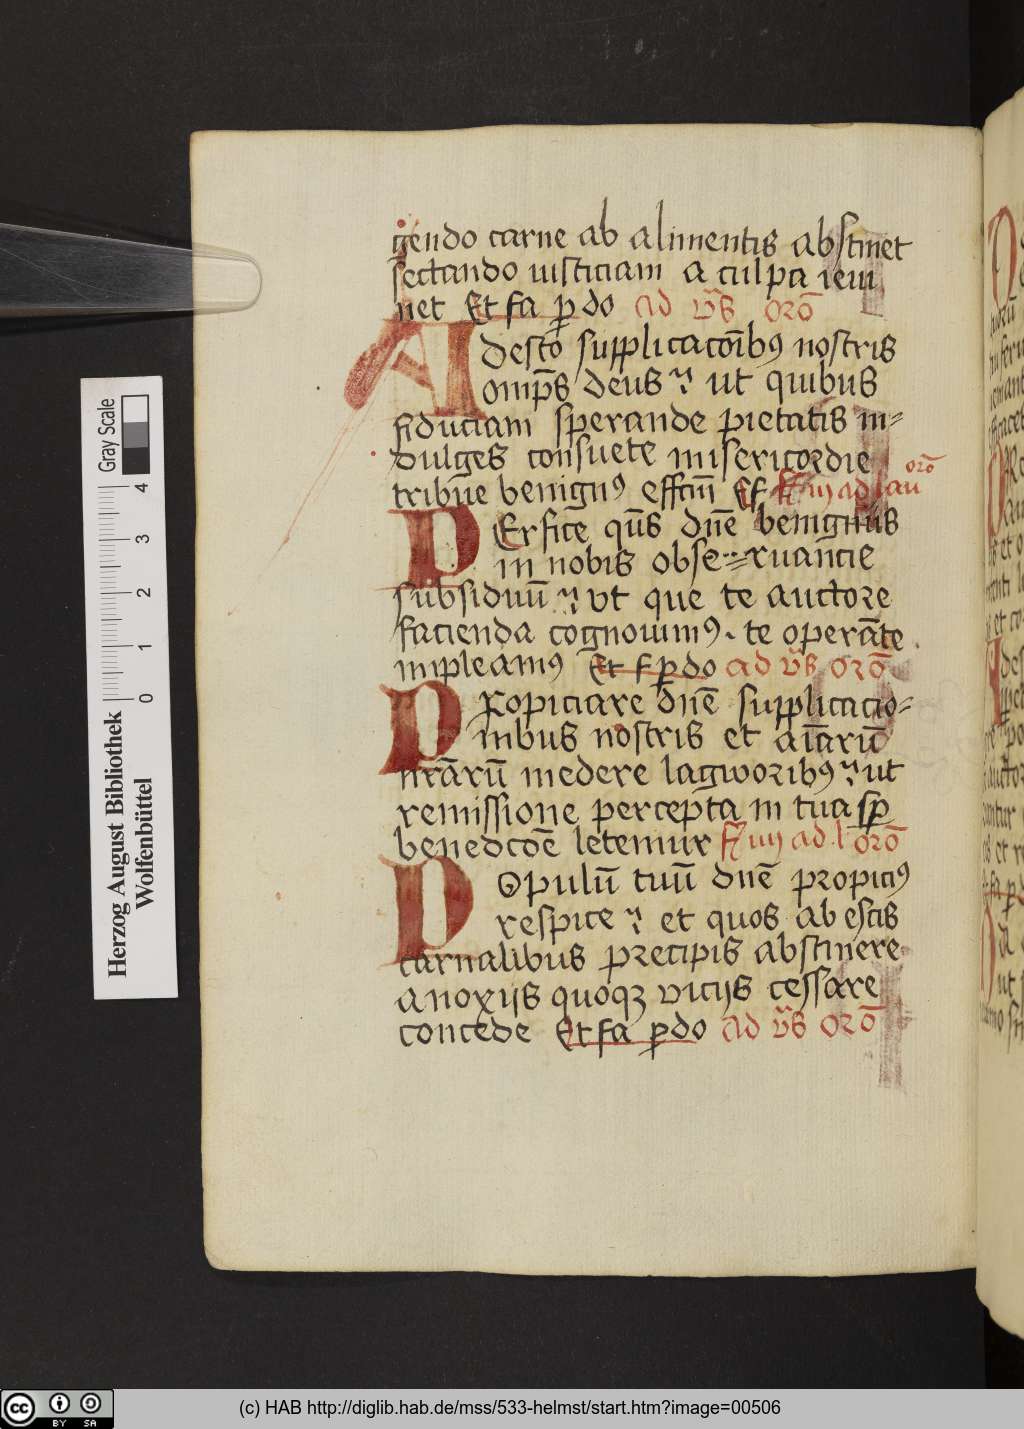 gendo carne ab alimentis abstinet
sectando iusticiam a culpa ieiu
net Et fa ꝑdo ad v̄s orō
Adesto supplicacōibꝰ nostris
om̄ps deus ⁊ ut quibus
fiduciam sperande pietatis in⸗
dulges consuete misericordie
tribue benignꝰ effcm̄ Et orō
f iij ad lau
Perfice qūs dn̄e benignus
in nobis obse⸗ruancie
subsidiuū ⁊ vt que te auctore
facienda cognouimꝰ · te operāte
impleamꝰ Et f ꝑdo ad v̄s orō
Propiciare dn̄e supplicacio⸗
nibus nostris et aīarū
nrārū medere lagworibꝰ ⁊ ut
remissione percepta in tua sꝑ
benedcōe letemur f iiij ad l orō
Populū tuū dn̄e propiciꝰ
respice ⁊ et quos ab escis
carnalibus precipis abstinere
a noxijs quoqꝫ vicijs cessare
concede Et fa ꝑdo ad v̄s orō
Gray Scale
0 1 2 3 4
Herzog August Bibliothek
Wolfenbüttel
cc BY SA
(c) HAB http://diglib.hab.de/mss/533-helmst/start.htm?image=00506